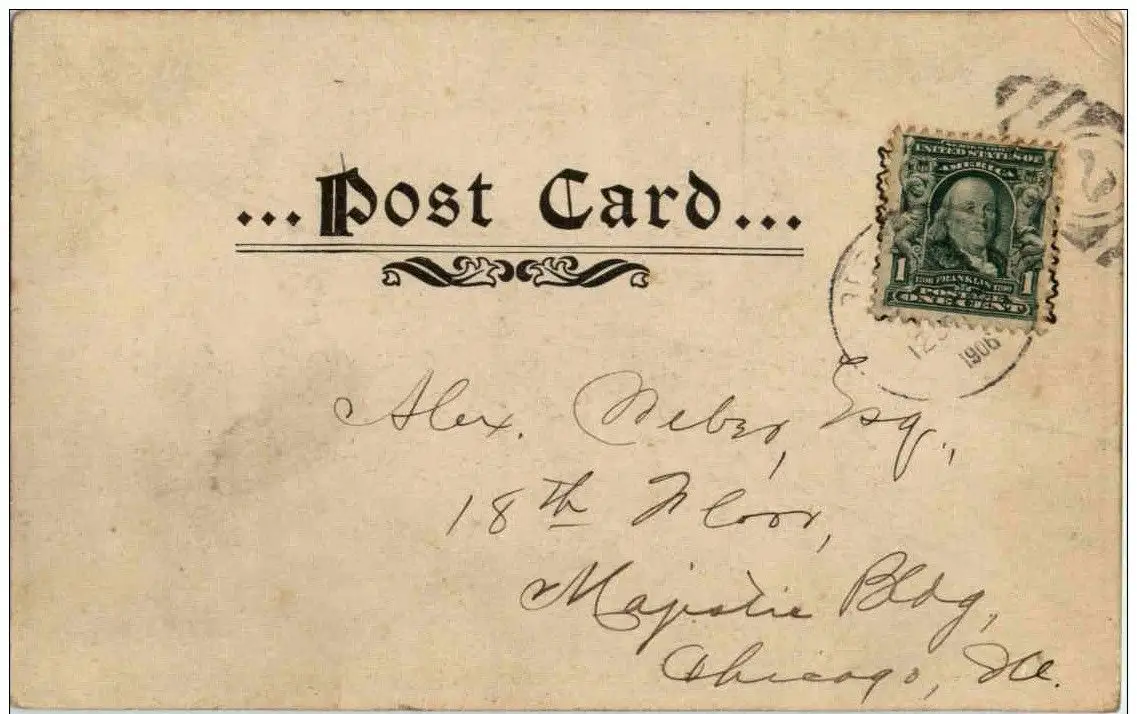 ...Post Card...
UNITED STATES OF
AMERICA
1 1
FRANKLIN
ONE CENT
1906
2
Alex. Weber, Esq.,
18th Floor,
Majestic Bldg,
Chicago, Ill.